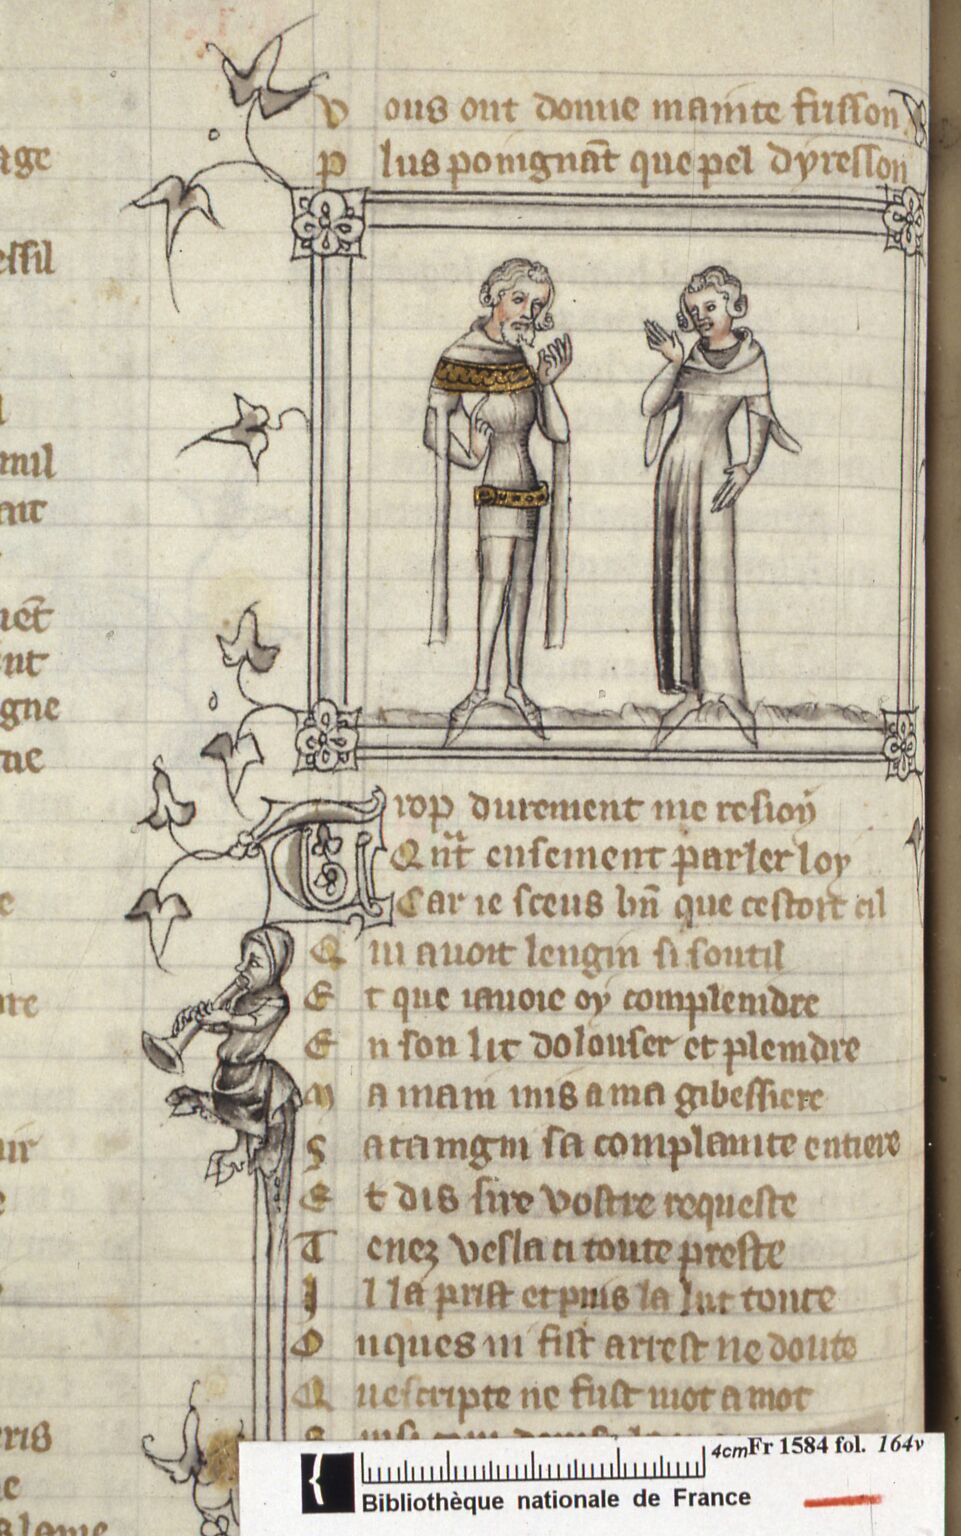 age
essil
mil
ent
gne
ne
e
ure
uir
e
eris
le
slame
Vous ont donne mainte frisson
Plus poingnāt que pel dyresson
Trop durement me resioy
Qnt ensement parler loy
Car ie sceus bn̄ que cestoit cil
Qui auoit lengin si soutil
Et que iauoie oy compleindre
En son lit dolouser et pleindre
Ma main mis a ma gibessiere
Sataingni sa complainte entiere
Et dis sire vostre requeste
Tenez vesla ci toute preste
Il la prist et puis la lut toute
Onques ni fist arrest ne doute
Quescripte ne fust mot a mot
4cm Fr 1584 fol. 164v
Bibliothèque nationale de France